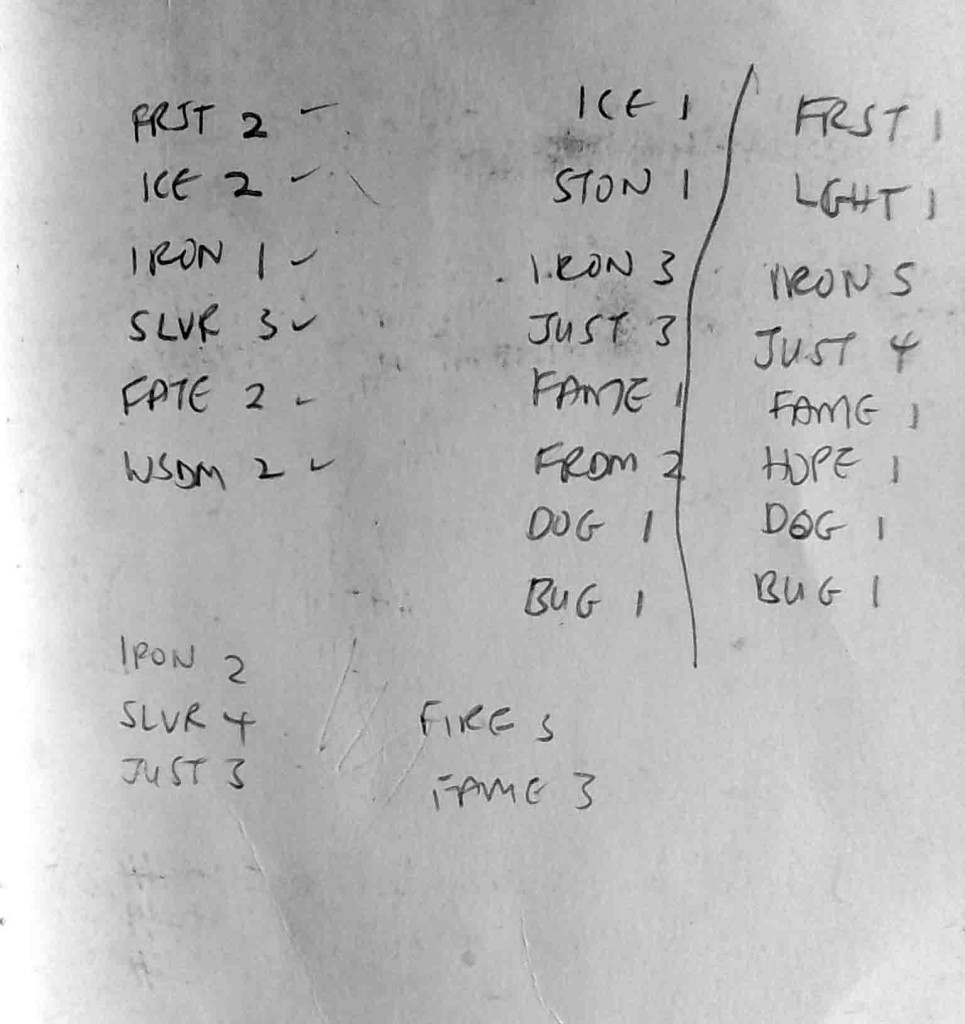 FRST 2
ICE 2
IRON 1
SLVR 3
FATE 2
WSDM 2
ICE 1
STON 1
IRON 3
JUST 3
FAME 1
FRDM 2
DOG 1
BUG 1
FRST 1
LGHT 1
IRON 5
JUST 4
FAME 1
HOPE 1
DOG 1
BUG 1
IRON 2
SLVR 4
JUST 3
FIRE 3
FAME 3